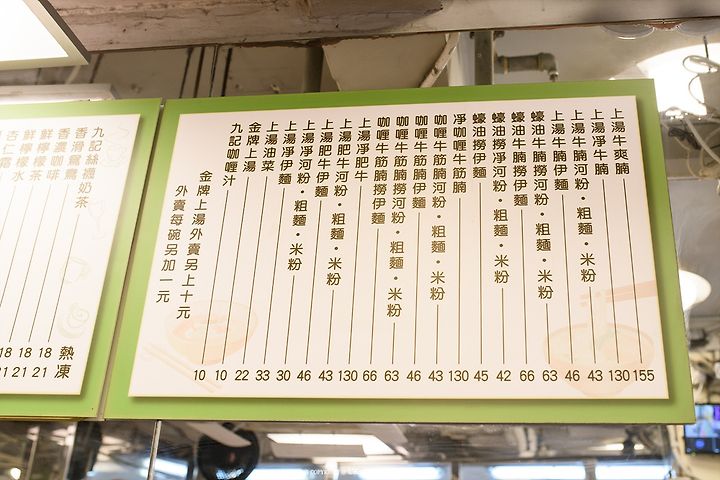 上湯牛爽腩 155
上湯淨牛腩 130
上湯牛腩河粉·粗麵·米粉 43
上湯牛腩伊麵 46
蠔油牛腩撈河粉·粗麵·米粉 63
蠔油牛腩撈伊麵 66
蠔油撈淨河粉·粗麵·米粉 42
蠔油撈伊麵 45
淨咖喱牛筋腩 130
咖喱牛筋腩河粉·粗麵·米粉 43
咖喱牛筋腩伊麵 46
咖喱牛筋腩撈河粉·粗麵·米粉 63
咖喱牛筋腩撈伊麵 66
上湯淨肥牛 130
上湯肥牛河粉·粗麵·米粉 43
上湯肥牛伊麵 46
上湯淨河粉·粗麵·米粉 30
上湯淨伊麵 33
上湯油菜 22
金牌上湯 10
九記咖喱汁 10
金牌上湯外賣另上十元
外賣每碗另加一元
九記絲襪奶茶
香滑鴛鴦
香濃咖啡
鮮檸檬茶
鮮檸檬水
杏仁霜
18 18 18 熱
21 21 21 凍